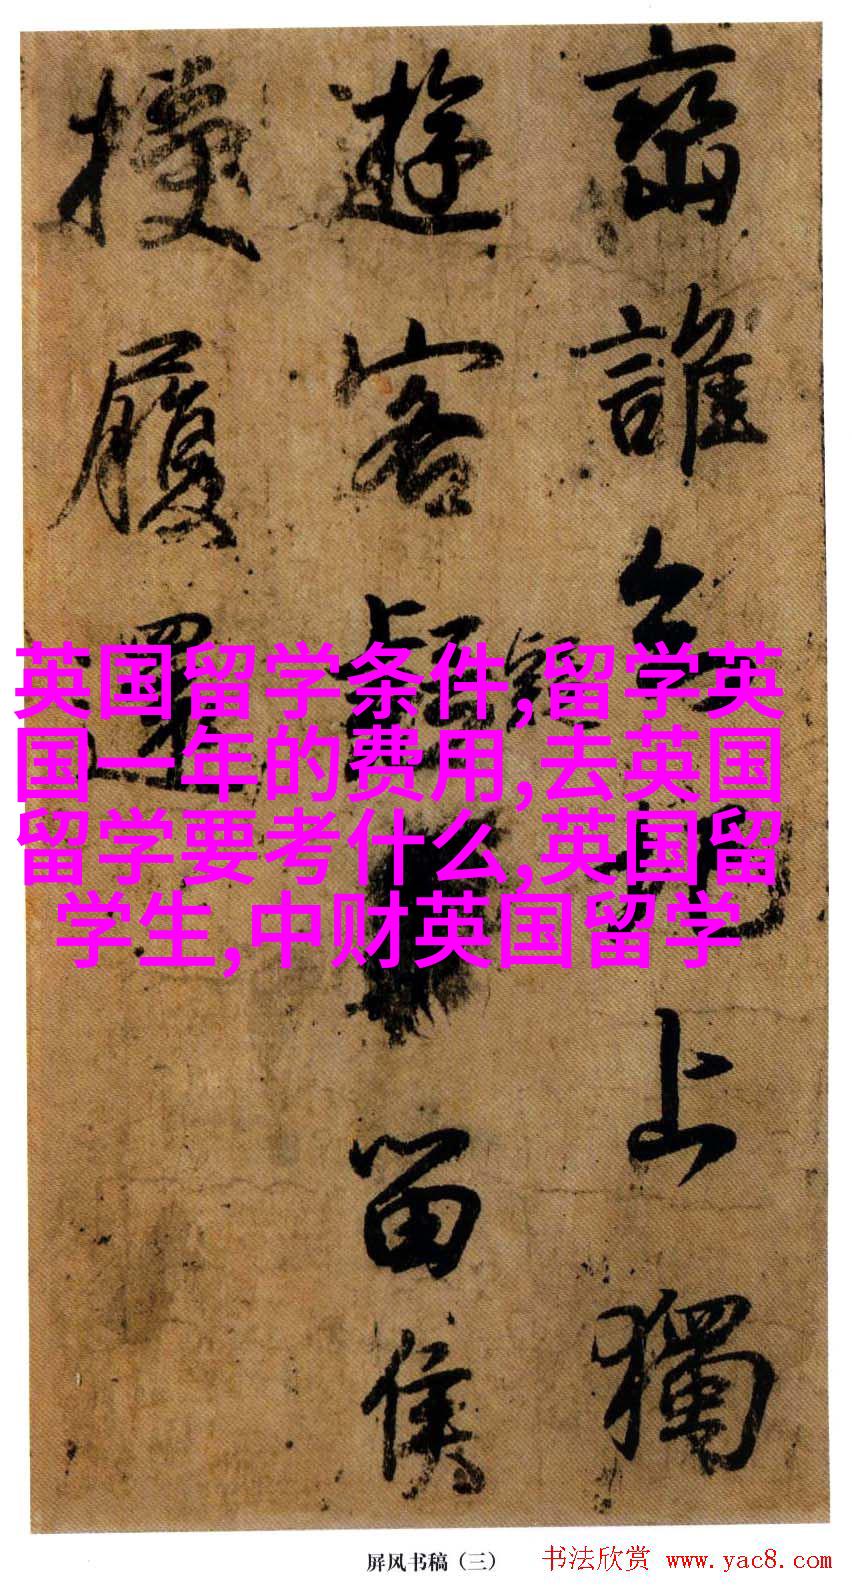 誰上獨
遊客留侯
履還
英国留学条件,留学英
国一年的费用,去英国
留学要考什么,英国留
学生,中财英国留学
屏风书稿（三）
书法欣赏 www.yac8.com